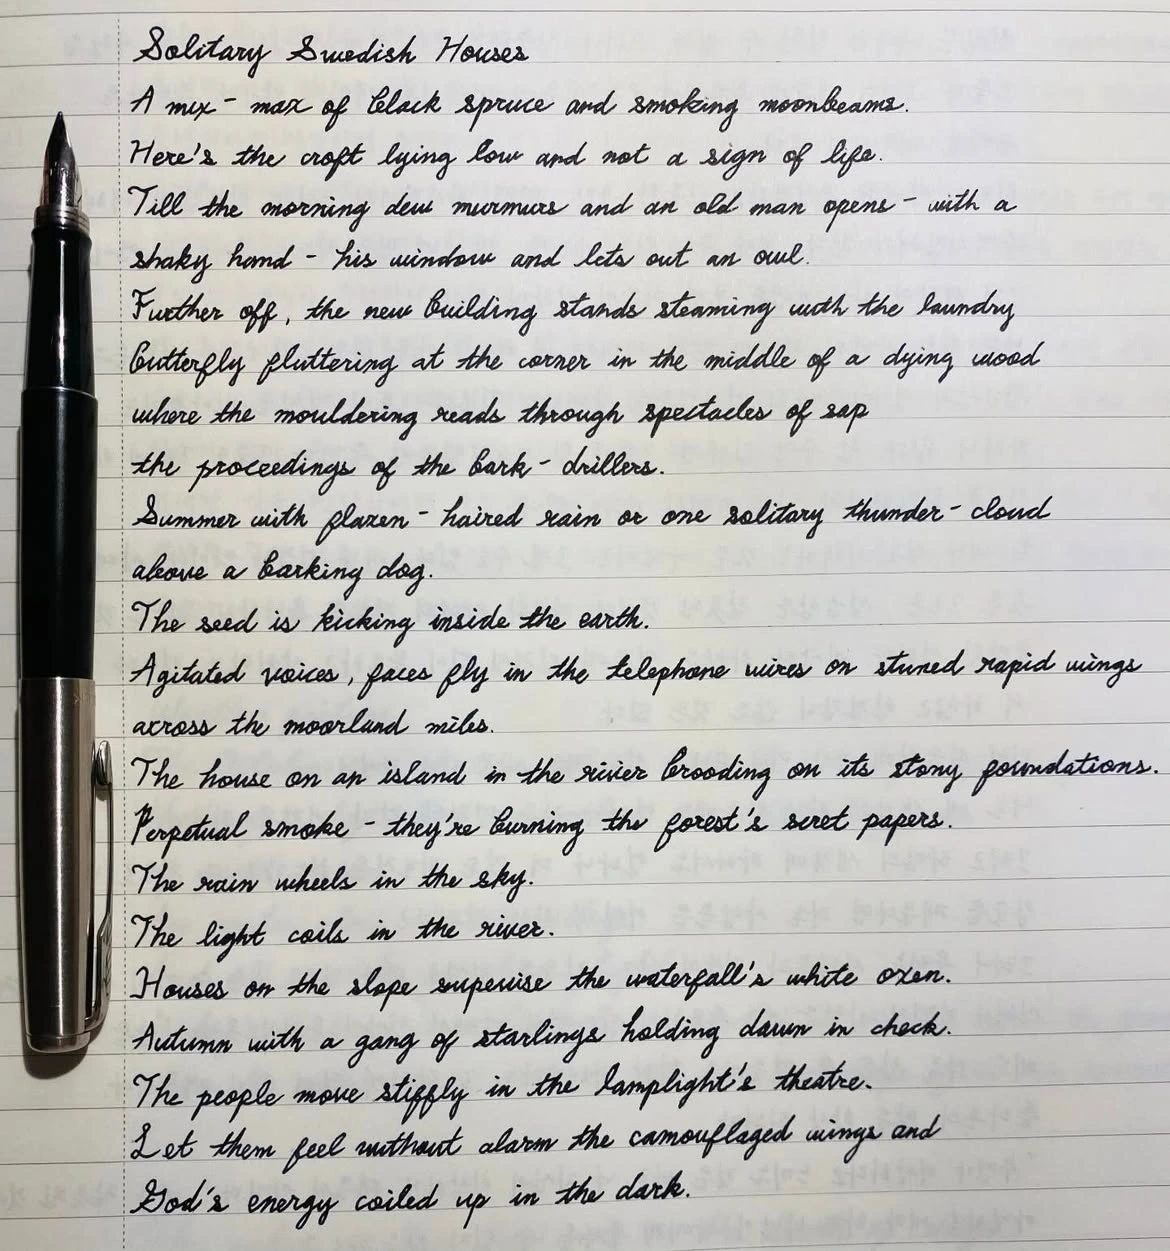 Solitary Swedish Houses
A mix - max of black spruce and smoking moonbeams.
Here's the croft lying low and not a sign of life.
Till the morning dew murmurs and an old man opens - with a
shaky hand - his window and lets out an owl.
Further off, the new building stands steaming with the laundry
butterfly fluttering at the corner in the middle of a dying wood
where the mouldering reads through spectacles of sap
the proceedings of the bark - drillers.
Summer with flaxen - haired rain or one solitary thunder - cloud
above a barking dog.
The seed is kicking inside the earth.
Agitated voices, faces fly in the telephone wires on stuned rapid wings
across the moorland miles.
The house on an island in the river brooding on its stony foundations.
Perpetual smoke - they're burning the forest's scret papers.
The rain wheels in the sky.
The light coils in the river.
Houses on the slope supervise the waterfall's white oxen.
Autumn with a gang of starlings holding dawn in check.
The people move stiffly in the lamplight's theatre.
Let them feel without alarm the camouflaged wings and
God's energy coiled up in the dark.